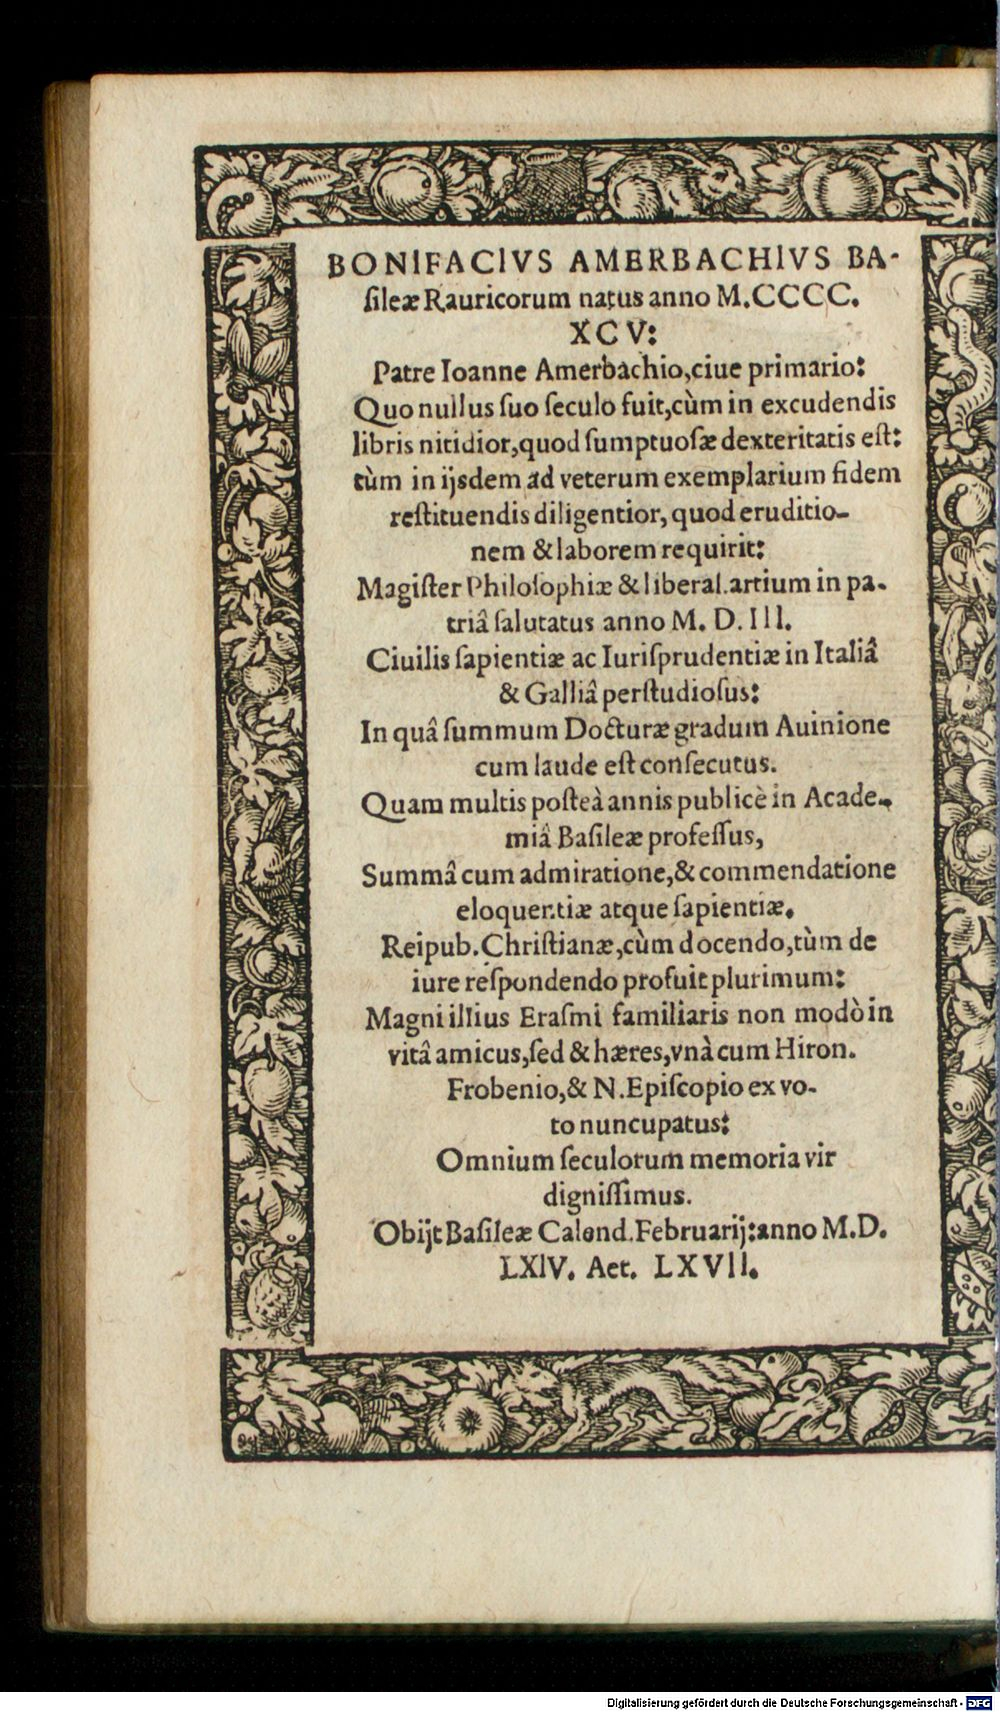 BONIFACIVS AMERBACHIVS BA-
ſileæ Rauricorum natus anno M.CCCC.
XCV:
Patre Ioanne Amerbachio,ciue primario:
Quo nullus ſuo ſeculo fuit,cùm in excudendis
libris nitidior,quod ſumptuoſæ dexteritatis eſt:
tùm in ijsdem ad veterum exemplarium fidem
reſtituendis diligentior, quod eruditio-
nem & laborem requirit:
Magiſter Philoſophiæ & liberal.artium in pa-
triâ ſalutatus anno M. D. III.
Ciuilis ſapientiæ ac Iuriſprudentiæ in Italiâ
& Galliâ perſtudioſus:
In quâ ſummum Docturæ gradum Auinione
cum laude eſt conſecutus.
Quam multis poſteà annis publicè in Acade-
miâ Baſileæ profeſſus,
Summâ cum admiratione,& commendatione
eloquentiæ atque ſapientiæ.
Reipub. Chriſtianæ,cùm docendo,tùm de
iure reſpondendo profuit plurimum:
Magni illius Eraſmi familiaris non modò in
vitâ amicus,ſed & hæres,vnà cum Hiron.
Frobenio,& N.Epiſcopio ex vo-
to nuncupatus:
Omnium ſeculorum memoria vir
digniſſimus.
Obijt Baſileæ Calend.Februarij:anno M.D.
LXIV. Aet. LXVII.
Digitalisierung gefördert durch die Deutsche Forschungsgemeinschaft - DFG